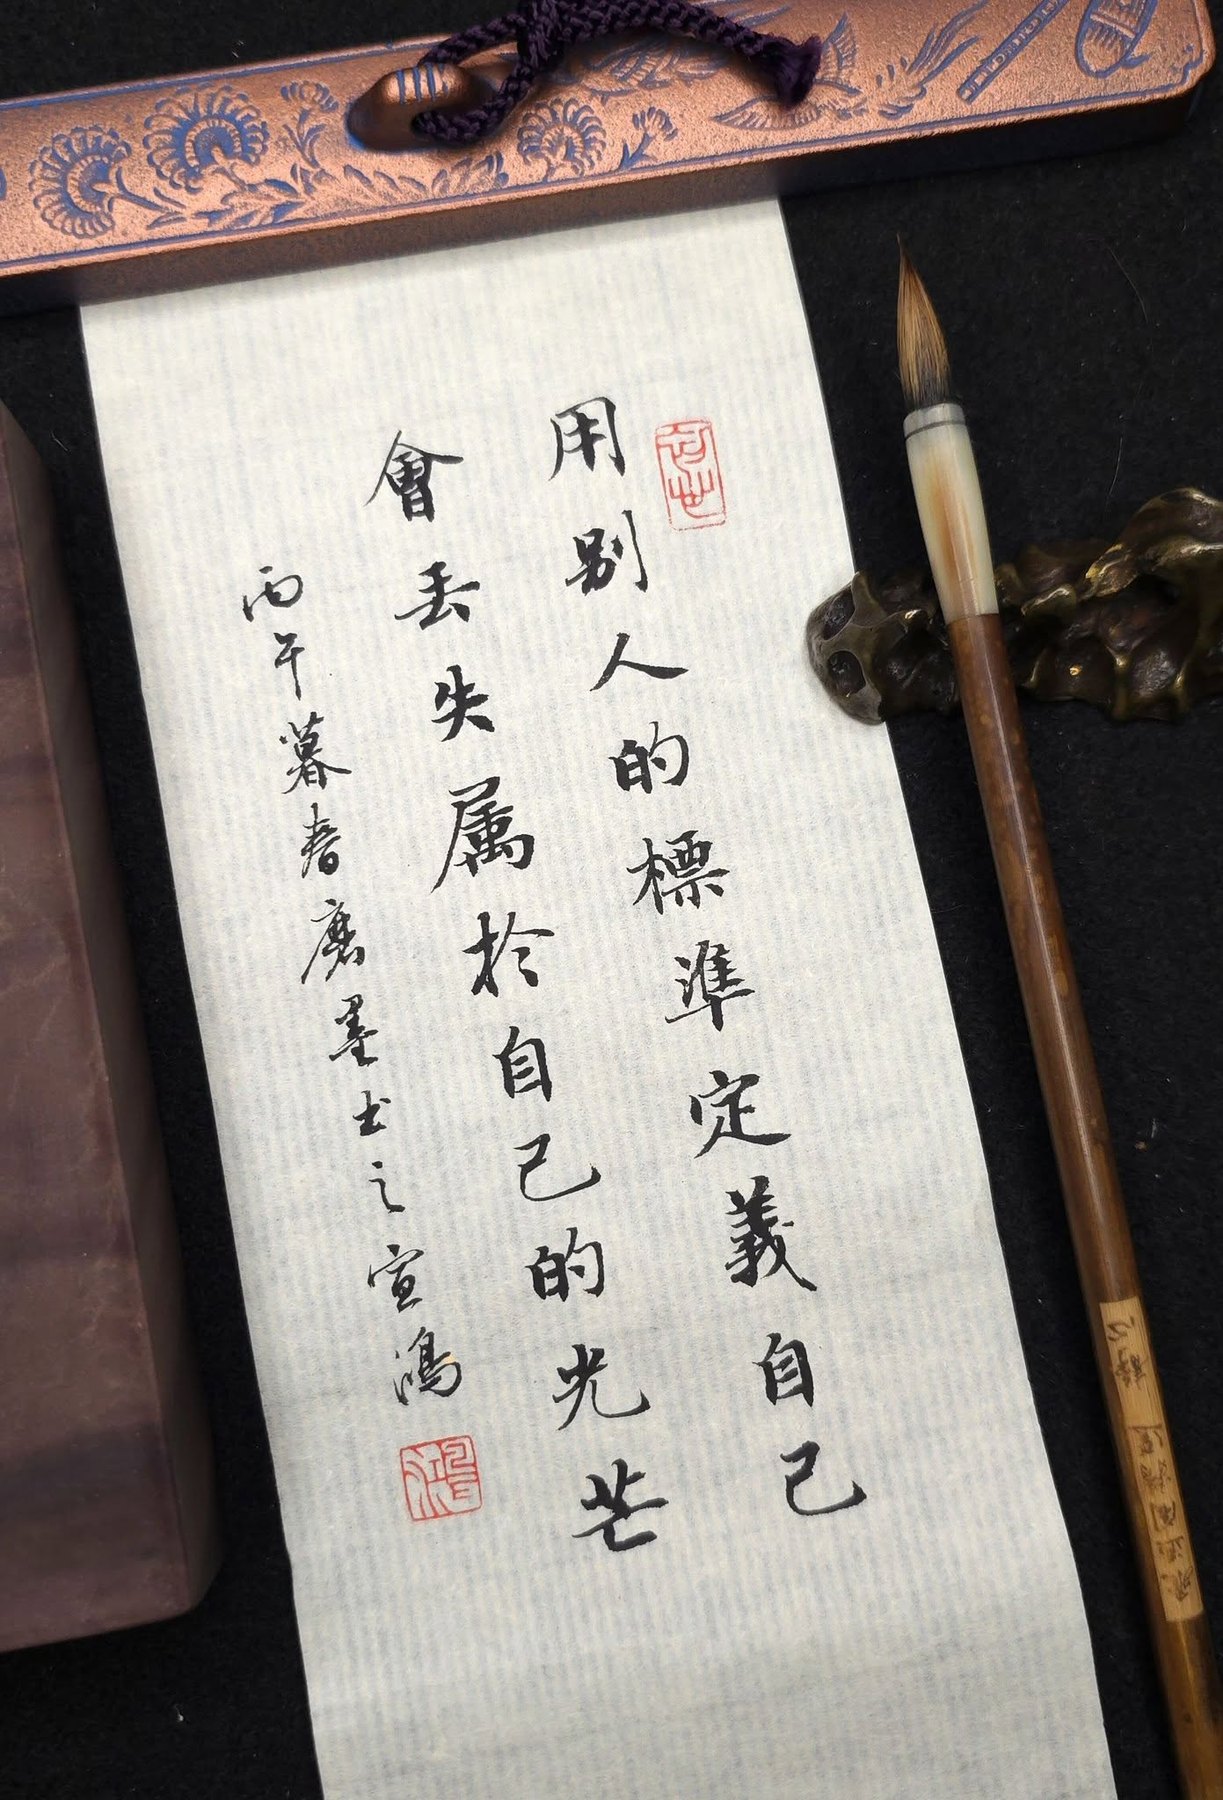 用别人的標準定義自己
會丢失属於自己的光芒
丙午暮春磨墨书之宣鴻